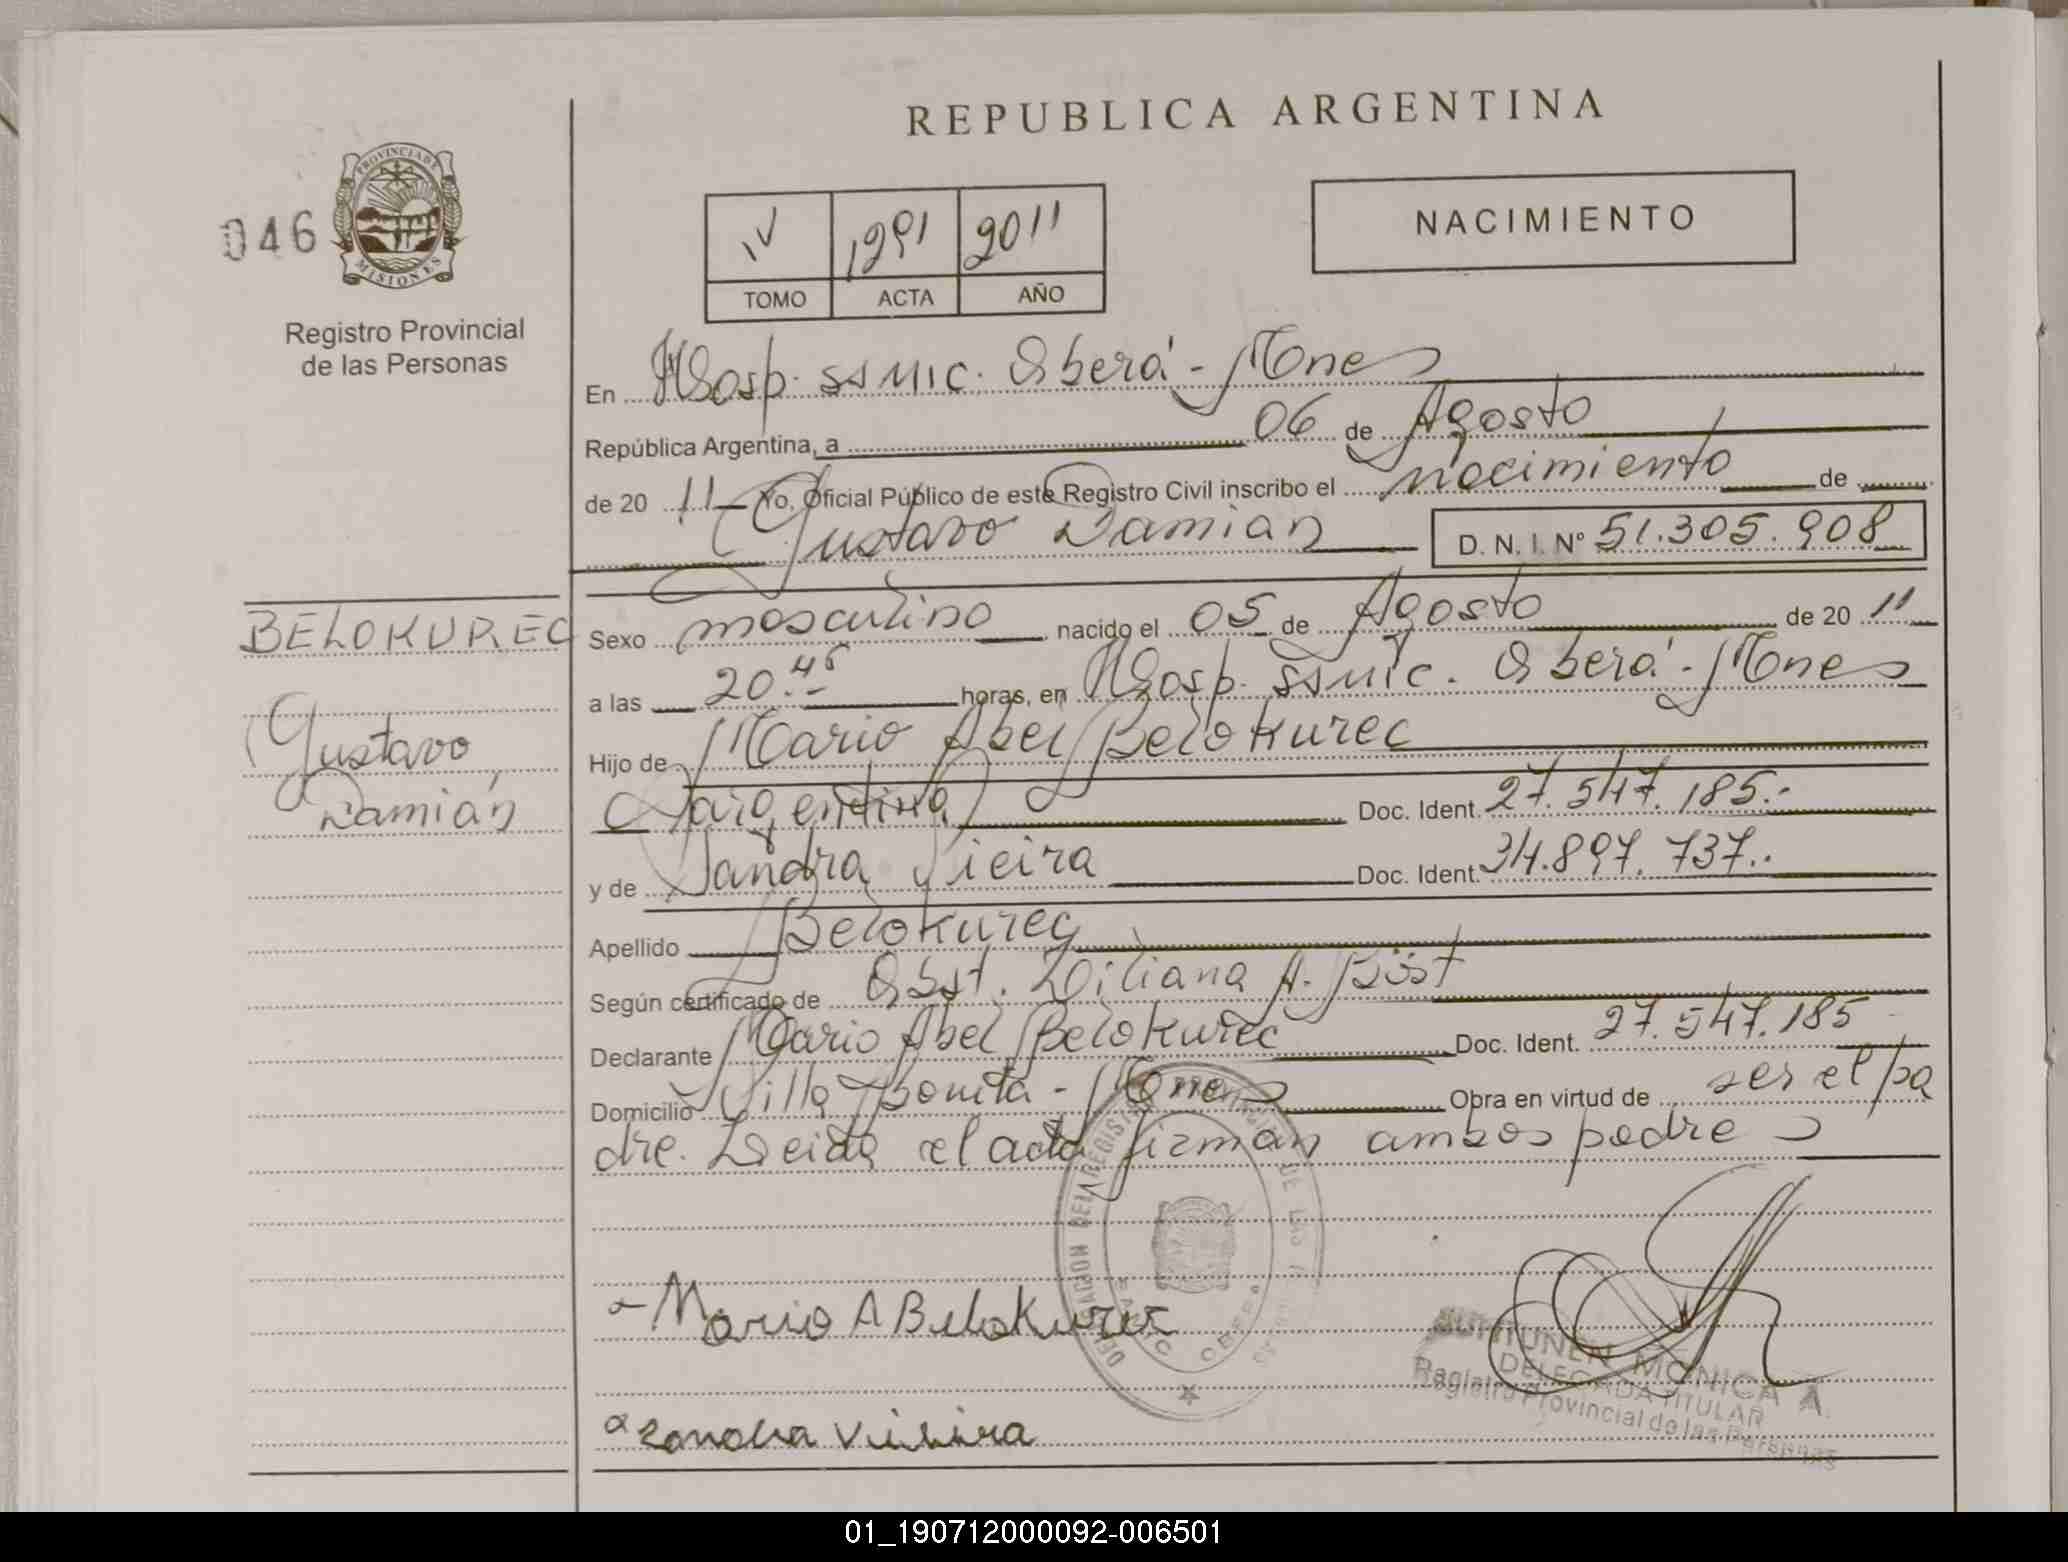 REPUBLICA ARGENTINA
046
PROVINCIA DE
MISIONES
Registro Provincial
de las Personas
IV 1291 2011
TOMO ACTA AÑO
NACIMIENTO
En Hosp. SSMIC. Oberá - Mnes
República Argentina, a 06 de Agosto
de 20 11 Yo, Oficial Público de este Registro Civil inscribo el nacimiento de
Gustavo Damián D. N. I. Nº 51.305.908
BELOKUREC
Gustavo
Damián
Sexo masculino nacido el 05 de Agosto de 20 11
a las 20.45 horas, en Hosp. SSMIC. Oberá - Mnes
Hijo de Mario Abel Belokurec
argentina Doc. Ident. 27.547.185.-
y de Sandra Vieira Doc. Ident. 34.897.737..
Apellido Belokurec
Según certificado de Obst. Liliana A. Büst
Declarante Mario Abel Belokurec Doc. Ident. 27.547.185
Domicilio Villa Bonita - Mnes Obra en virtud de ser el pa
dre. Leida el acta firman ambos padres
Mario A Belokurec
DELEGACION DEL REGISTRO PROVINCIAL DE LAS
OBERA
MONICA A.
DELEGADA TITULAR
Registro Provincial de las Personas
Sandra Vieira
01_190712000092-006501